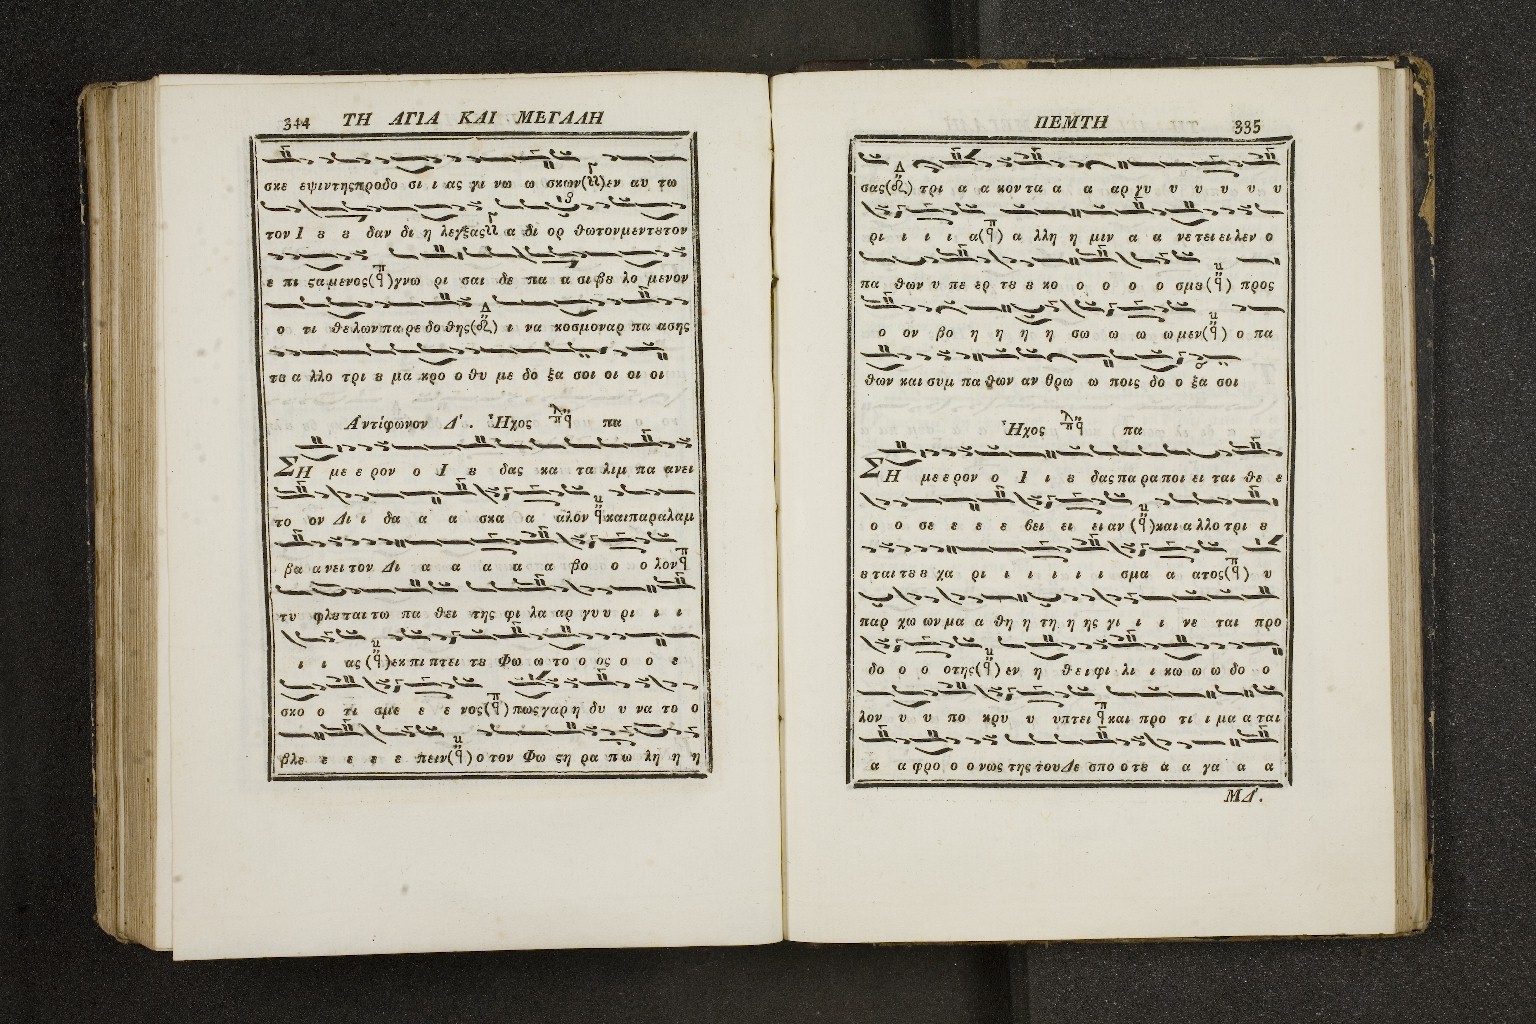 344 ΤΗ ΑΓΙΑ ΚΑΙ ΜΕΓΑΛΗ
σκε εψιντηςπροδο σι ι ας γι νω ω σκων εν αυ τω
τον Ι ȣ ȣ δαν δι η λεγξας α δι ορ θωτονμεντȣτον
ε πι ϛαμενος γνω ρι σαι δε πα α σι βȣ λο μενον
ο τι θελωνπαρεδοθης ι να κοσμοναρ πα ασης
τȣ α λλο τρι ȣ μα κρο ο θυ με δο ξα σοι οι οι οι
Αντίφωνον Δ'. Ἦχος λ π q πα
ΣΗ με ε ρον ο Ι ȣ δας κα τα λιμ πα ανει
το ον Δι ι δα α α σκα α αλον και παραλαμ
βα α νει τον Δι α α α α α βο ο ο λον
τυ φλȣται τω πα θει της φι λα αρ γυ υ ρι ι ι
ι ι ας εκ πι πτει τȣ Φω ω το ο ος ο ο ε
σκο ο τι σμε ε ε νος πως γαρ η δυ υ να το ο
βλε ε ε ε ε πειν ο τον Φω ϛη ρα πω λη η η
ΠΕΜΤΗ 335
σας τρι α α κον τα α α αρ γυ υ υ υ υ υ
ρι ι ι ι α α λλη η μιν α α νε τει ει λεν ο
πα θων υ πε ερ τȣ ȣ κο ο ο ο ο σμȣ προς
ο ον βο η η η η σω ω ω ω μεν ο πα
θων και συμ πα θων αν θρω ω ποις δο ο ξα σοι
Ἦχος λ π q πα
ΣΗ με ε ρον ο Ι ι ȣ δας πα ρα ποι ει ται θε ε
ο ο σε ε ε ε βει ει ει αν και α λλο τρι ȣ
ȣ ται τȣ ȣ χα ρι ι ι ι ι ι σμα α ατος υ
παρ χω ων μα α θη η τη η ης γι ι ι νε ται προ
δο ο ο οτης εν η θει φι λι ι κω ω ω δο ο
λον υ υ πο κρυ υ υπτει και προ τι ι μα α ται
α α φρο ο ο νως της του Δε σπο ο τȣ α α γα α α
ΜΔ'.